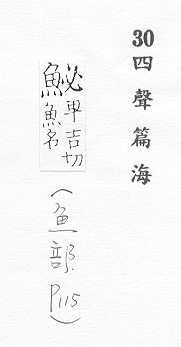 30四聲篇海
鮅卑吉切
魚名
（魚部. P115）